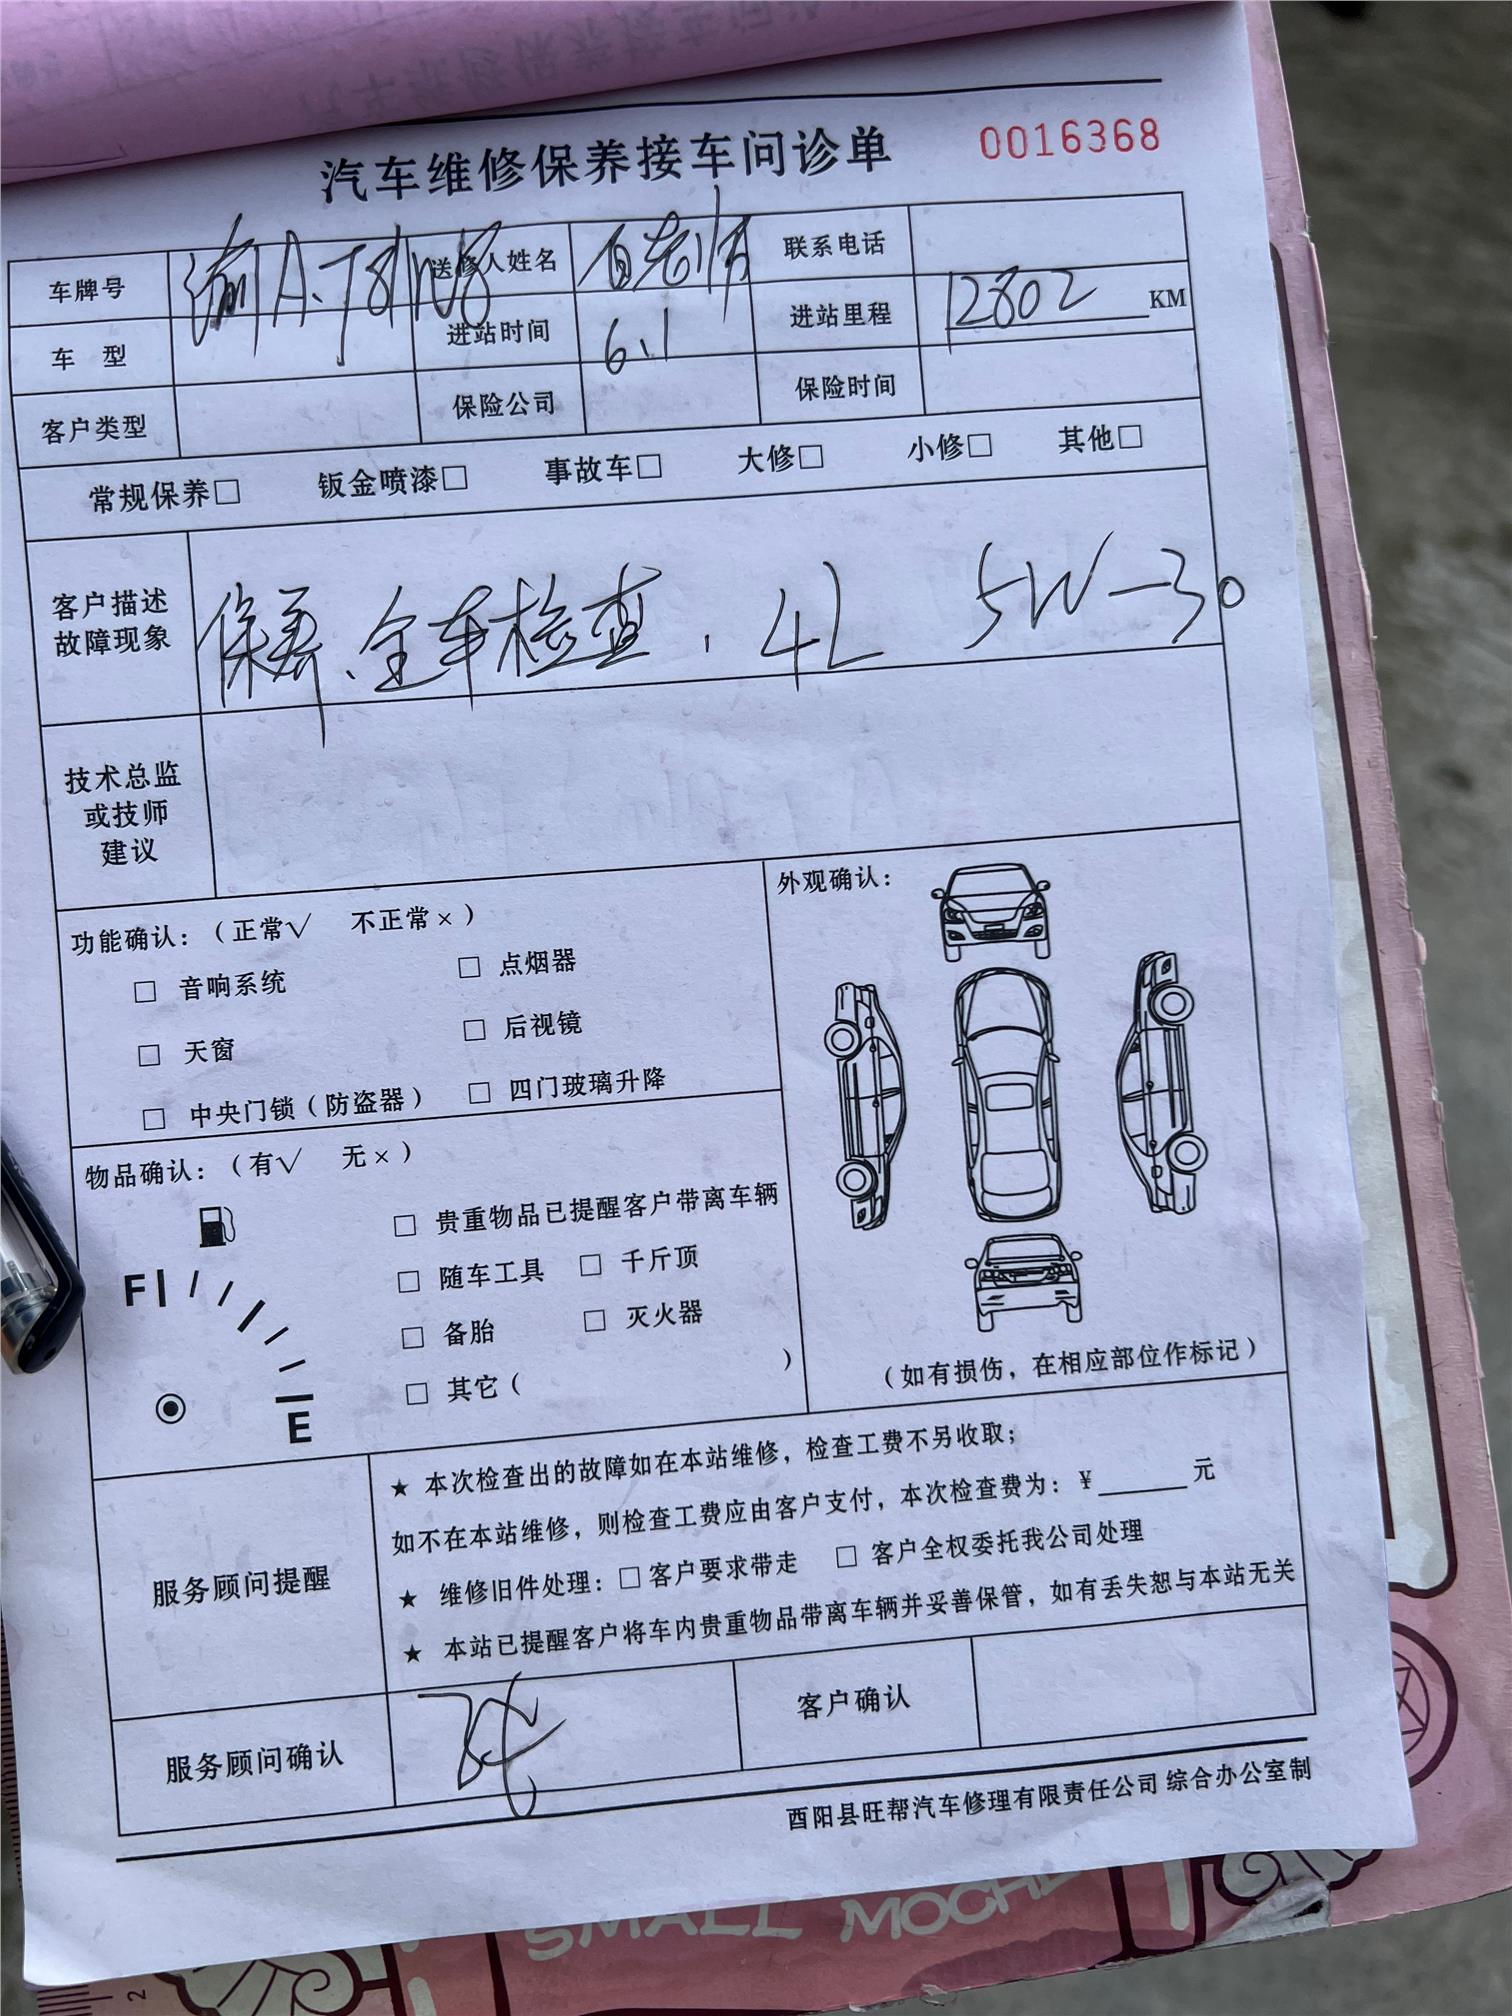 汽车维修保养接车问诊单 0016368
车牌号 渝A 送修人姓名 白老师 联系电话
车 型 进站时间 6.1 进站里程 12802 KM
客户类型 保险公司 保险时间
常规保养□ 钣金喷漆□ 事故车□ 大修□ 小修□ 其他□
客户描述
故障现象
保养、全车检查. 4L 5W-30
技术总监
或技师
建议
功能确认:(正常√ 不正常×)
□ 音响系统 □ 点烟器
□ 天窗 □ 后视镜
□ 中央门锁(防盗器) □ 四门玻璃升降
外观确认:
(如有损伤,在相应部位作标记)
物品确认:(有√ 无×)
F
E
□ 贵重物品已提醒客户带离车辆
□ 随车工具 □ 千斤顶
□ 备胎 □ 灭火器
□ 其它( )
服务顾问提醒
★ 本次检查出的故障如在本站维修,检查工费不另收取;
如不在本站维修,则检查工费应由客户支付,本次检查费为:¥______元
★ 维修旧件处理:□客户要求带走 □ 客户全权委托我公司处理
★ 本站已提醒客户将车内贵重物品带离车辆并妥善保管,如有丢失恕与本站无关
服务顾问确认 客户确认
酉阳县旺帮汽车修理有限责任公司 综合办公室制
SMALL MOCH
2